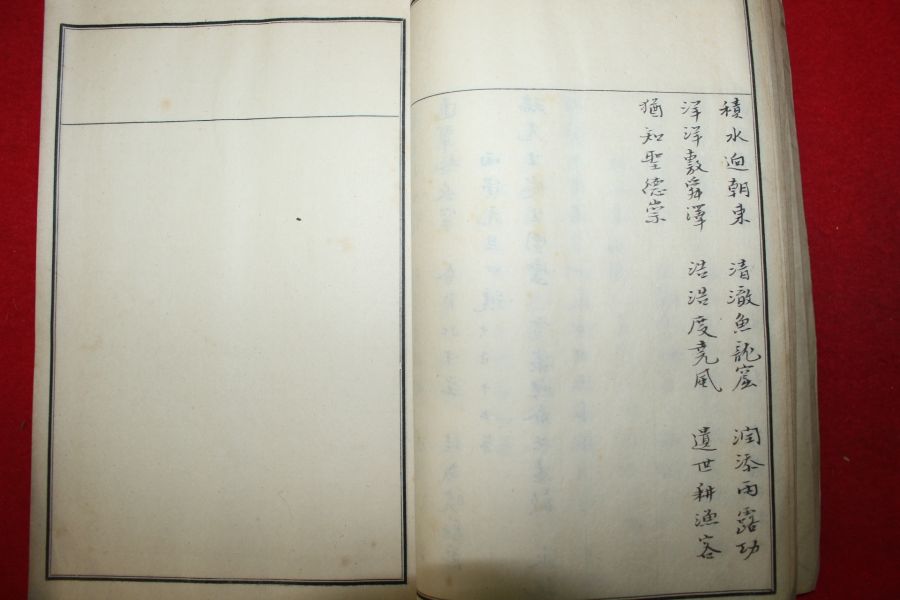 積水迎朝東 清澈魚龍窟 潤添雨露功
洋洋敷舜澤 浩浩度堯風 遺世耕漁客
猶知聖德崇